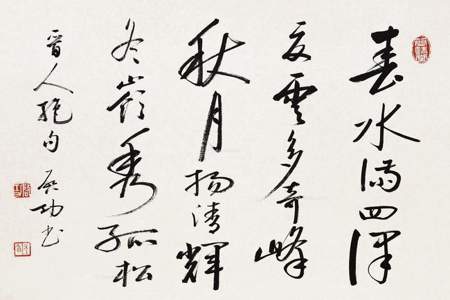 春水满四泽
夏云多奇峰
秋月扬清辉
冬岭秀孤松
晋人绝句 启功书